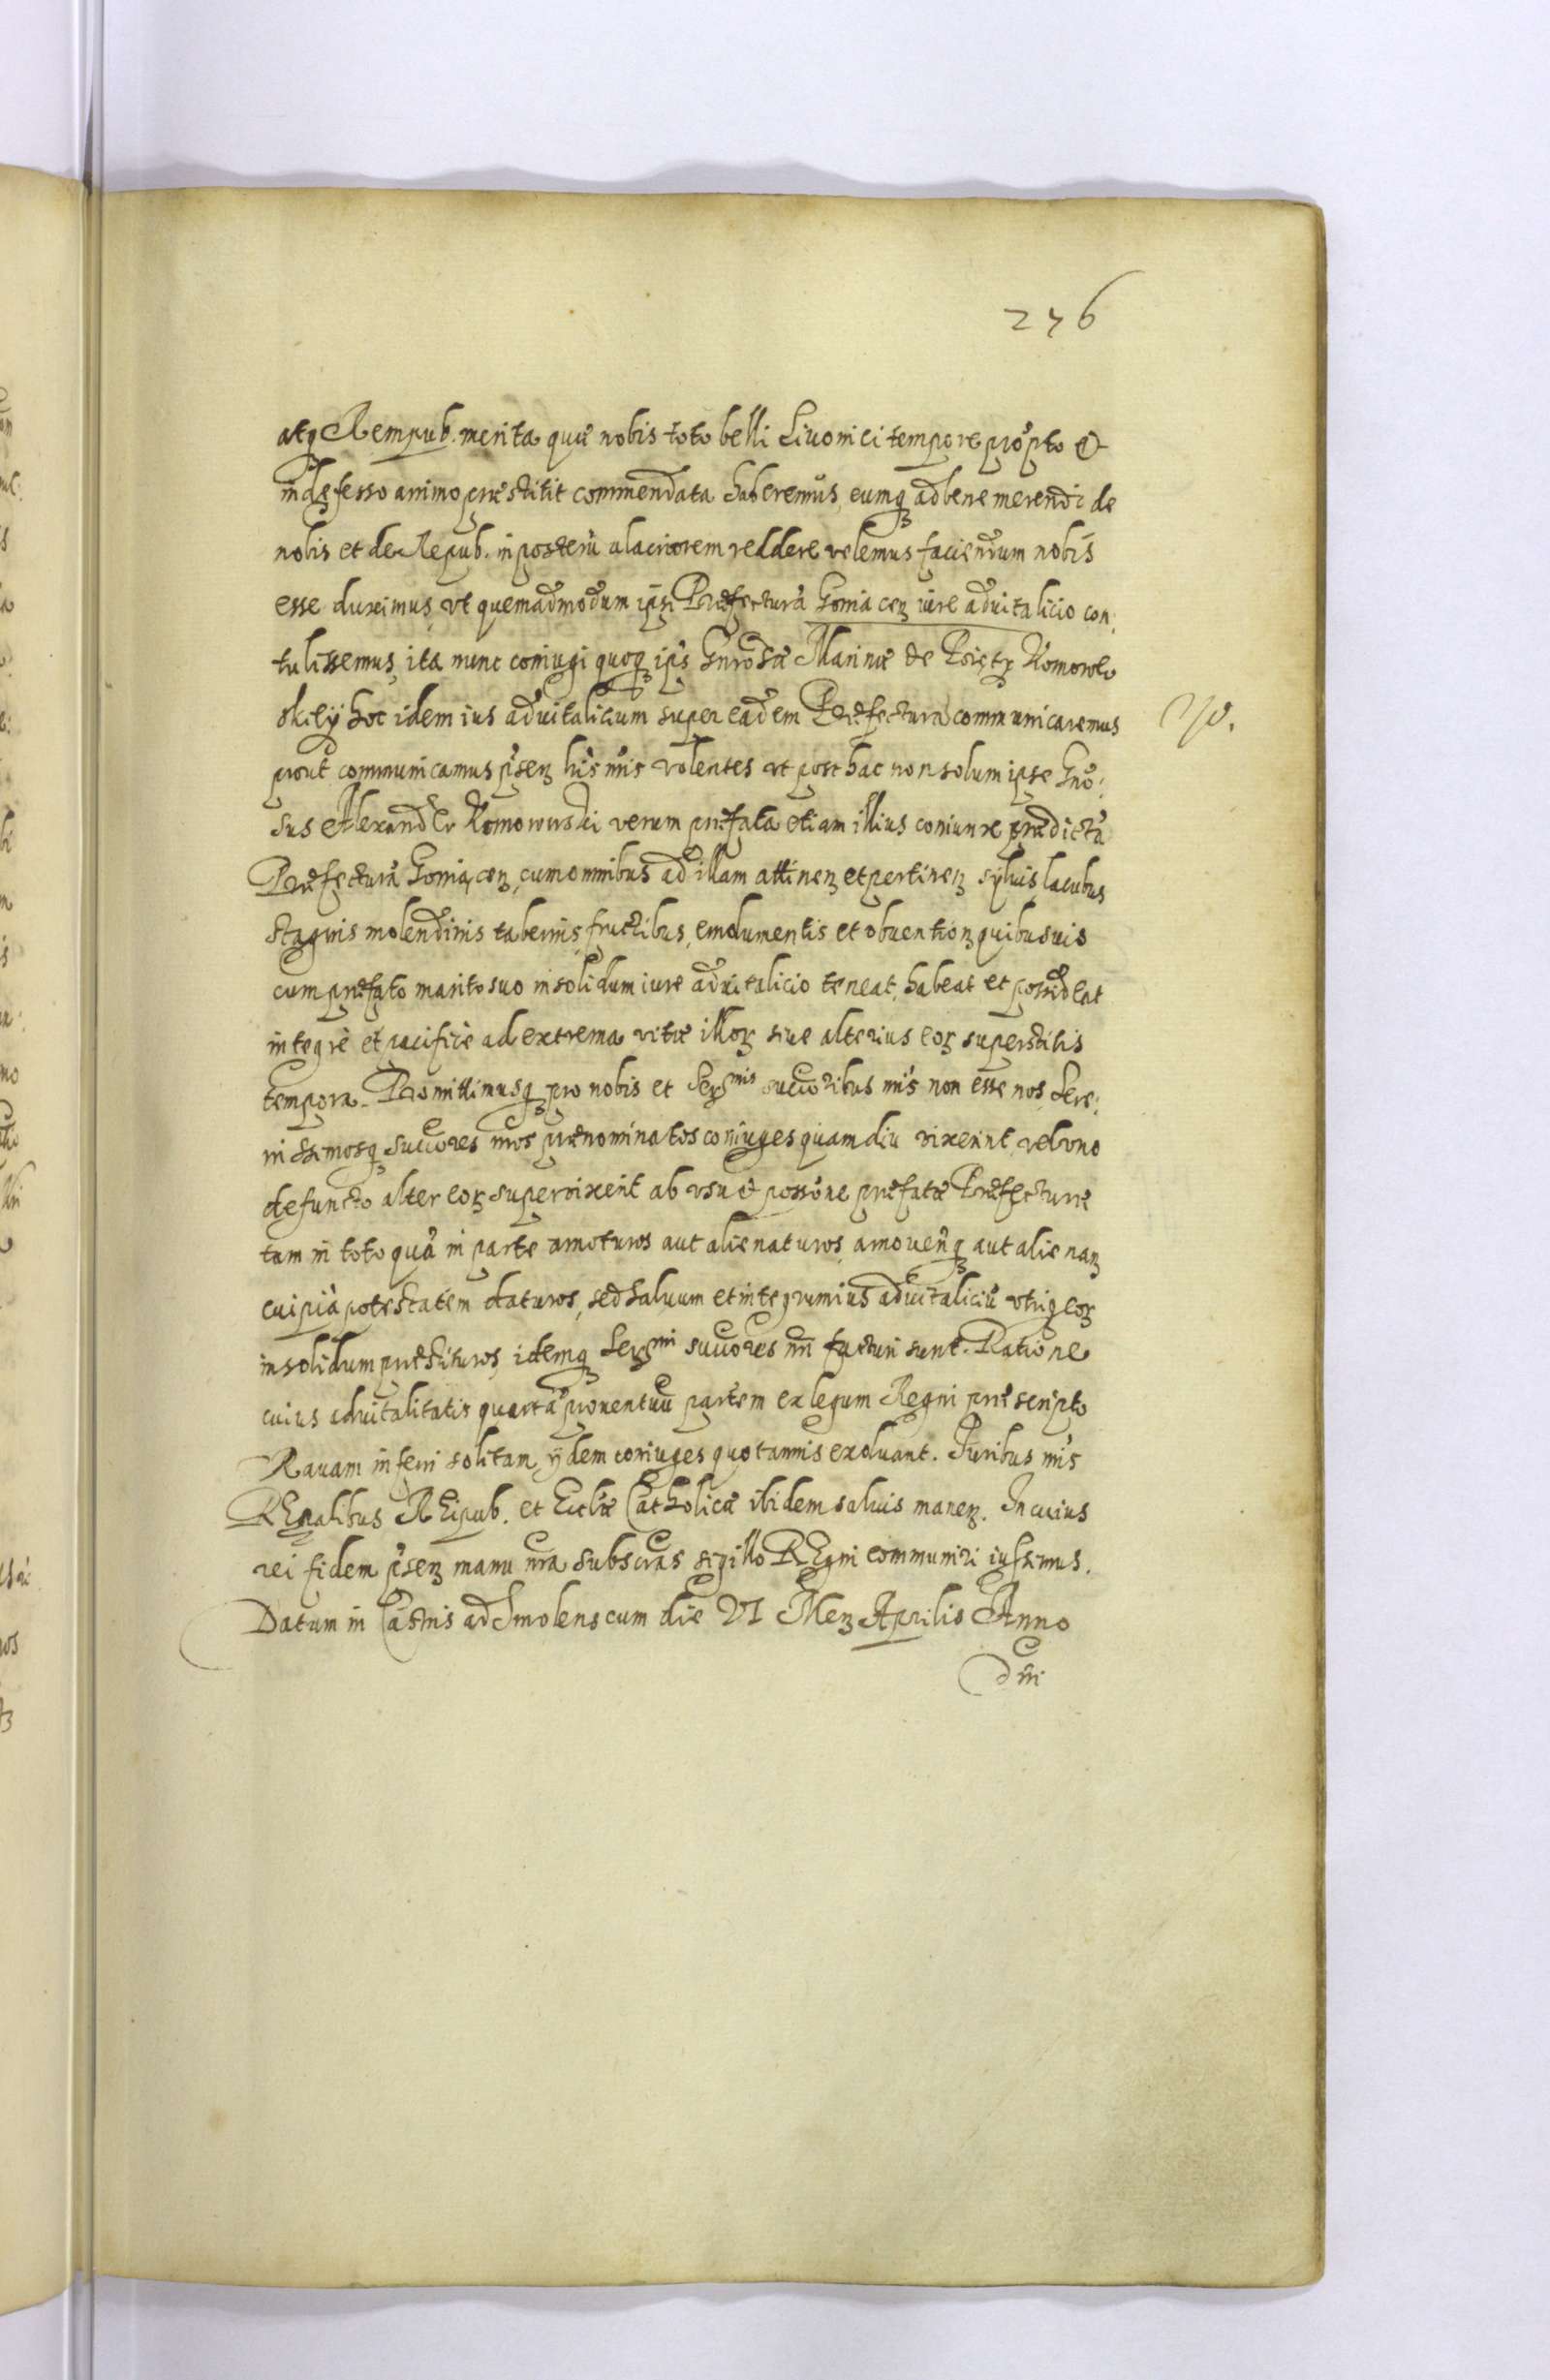 276
atq Rempub. merita quæ nobis toto belli Livonici tempore prõpto &
indefesso animo præstitit commendata haberemus, eumq ad bene merendi de
nobis et de Repub. in posterũ alacriorem reddere velemus faciendum nobis
esse duximus, vt quemadmodum ipsi Præfecturã Goniącen iure aduitalicio con:
tulissemus, ita nunc coniugi quoq ips Gnrosæ Marinæ de Komorow
skiey hoc idem ius aduitalicium super eadem Præfectura communicaremus
prout communicamus psen his nris volentes vt post hac non solum ipse Gno:
sus Alexander Komorowski verum præfata etiam illius coniunx prædictã
Præfecturã Goniącen, cum omnibus ad illam attinen et pertinen syluis lacubus
stagnis molendinis tabernis, fructibus, emolumentis et obuention quibusuis
cum præfato marito suo in solidum iure aduitalicio teneat, habeat et possideat
integrè et pacificè ad extrema vitæ illor siue alterius eor superstitis
tempora. Promittimusq pro nobis et Sermis succoribus nris non esse nos, Sere:
nissimosq succores nros prænominatos coniuges quamdiu vixerint, vel vno
defuncto alter eor supervixerit ab vsu & possone præfatæ Præfecturæ
tam in toto quã in parte amoturos aut alienaturos, amouenq aut alienan
cuipiã potestatem daturos, sed saluum et integrum ius aduitaliciũ vtriq eor
in solidum præstituros, idemq Sermi succores nri facturi sunt. Ratione
cuius aduitalitatis quartã prouentuũ partem ex legum Regni præscripto
Rauam inferri solitam ijdem coniuges quotannis exoluant. Iuribus nris
REgalibus REipub. et Eccliæ Catholicæ ibidem saluis manen. In cuius
rei fidem psen manu nra subscras sigillo REgni communiri iussimus.
Datum in Castris ad Smolenscum die VI Men Aprilis Anno
Dni